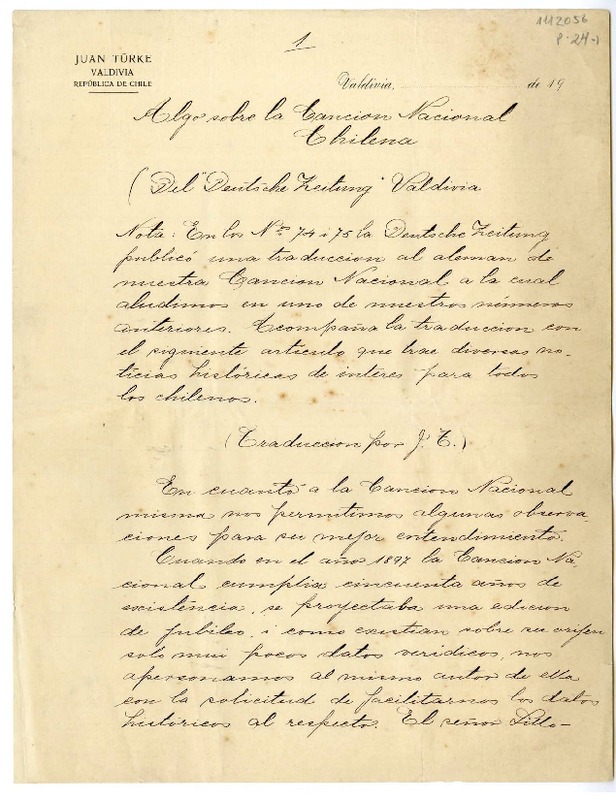 1
1112056
P-24-1
JUAN TÜRKE
VALDIVIA
REPÚBLICA DE CHILE
Valdivia, de 19
Algo sobre la Cancion Nacional
Chilena
( Del "Deutsche Zeitung" Valdivia
Nota: En los Nos 74 i 75 la Deutsche Zeitung
publicó una traduccion al aleman de
nuestra Cancion Nacional a la cual
aludimos en uno de nuestros números
anteriores. Acompaña la traduccion con
el siguiente artículo que trae diversas no-
ticias históricas de interes para todos
los chilenos.
(Traduccion por J. T.)
En cuanto a la Cancion Nacional
misma nos permitimos algunas observa-
ciones para su mejor entendimiento.
Cuando en el año 1897 la Cancion Na-
cional cumplia cincuenta años de
existéncia, se proyectaba una edicion
de Jubileo, i como existian sobre su oríjen
solo mui pocos datos verídicos, nos
apersonamos al mismo autor de ella
con la solicitud de facilitarnos los datos
históricos al respecto. El señor Lillo-